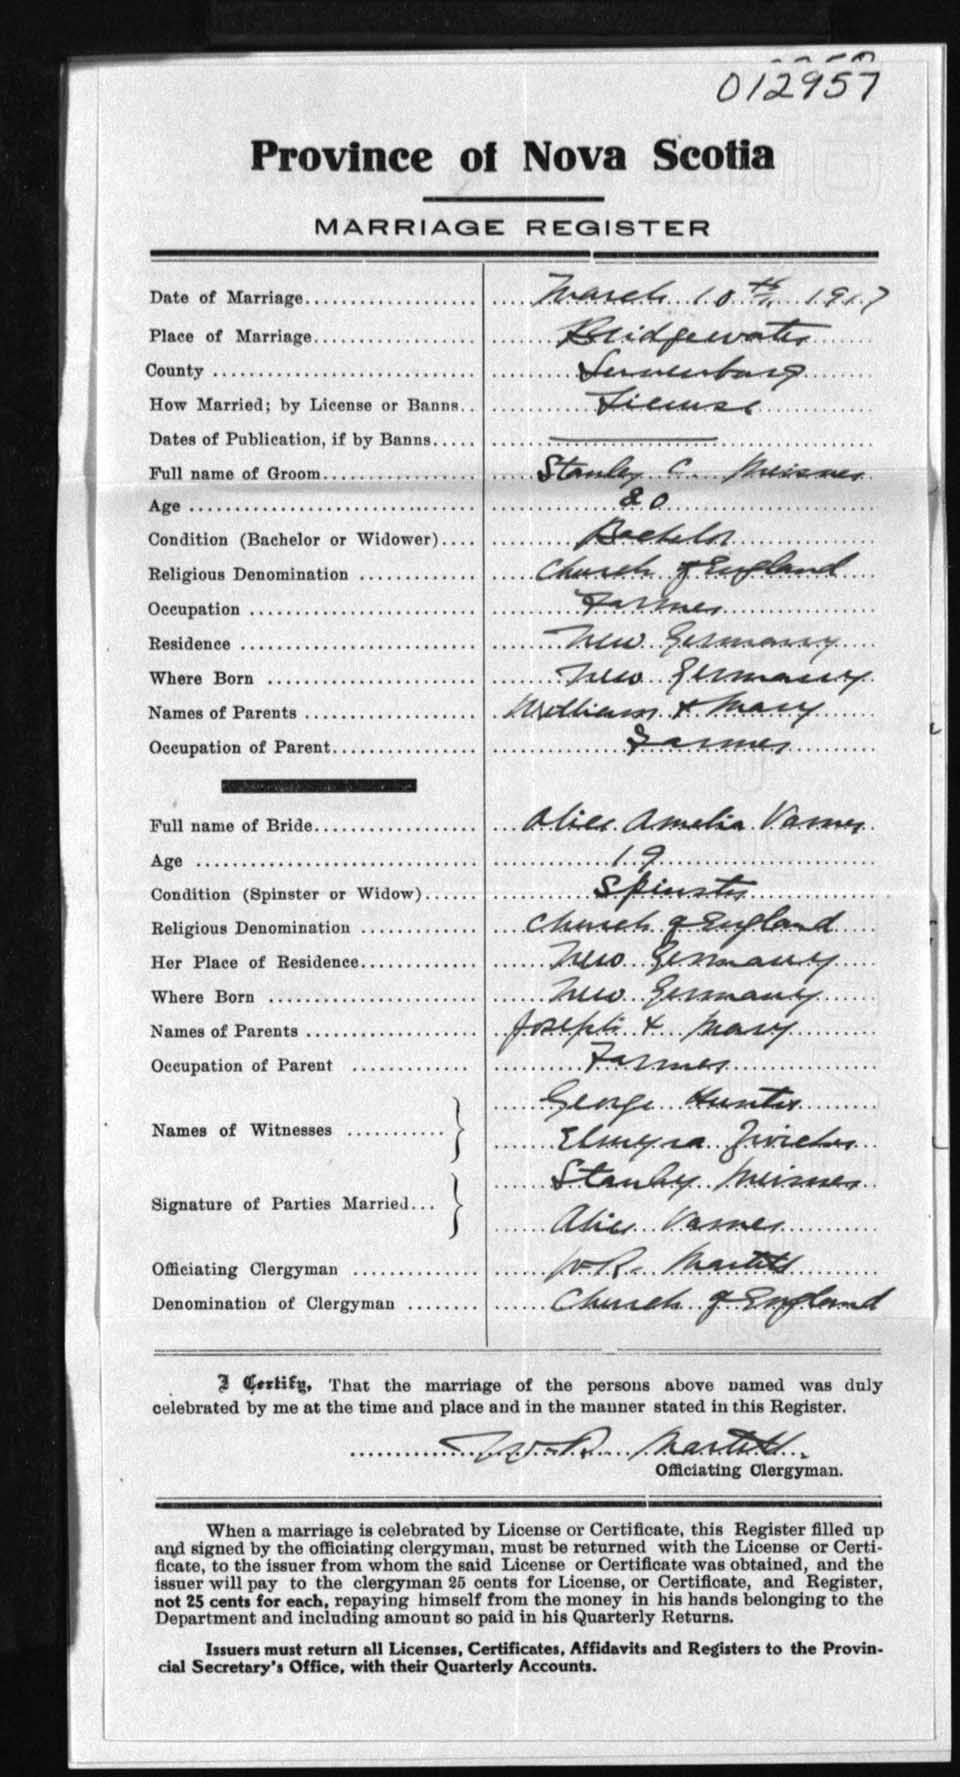 012957
Province of Nova Scotia
MARRIAGE REGISTER
Date of Marriage.................... March 10th 1917
Place of Marriage.................... Bridgewater
County .................... Lunenburg
How Married; by License or Banns.. License
Dates of Publication, if by Banns.....
Full name of Groom.................... Stanley C. Meisner
Age .................... 20
Condition (Bachelor or Widower).... Bachelor
Religious Denomination .................... Church of England
Occupation .................... Farmer
Residence .................... New Germany
Where Born .................... New Germany
Names of Parents .................... William & Mary
Occupation of Parent.................... Farmer
Full name of Bride.................... Alice Amelia Varner
Age .................... 19
Condition (Spinster or Widow)...... Spinster
Religious Denomination ............. Church of England
Her Place of Residence............. New Germany
Where Born .................... New Germany
Names of Parents .................... Joseph & Mary
Occupation of Parent ............. Farmer
George Hunter
Names of Witnesses ...........
Elmyra Zwicker
Stanley Meisner
Signature of Parties Married...
Alice Varner
Officiating Clergyman ............. W. R. Martell
Denomination of Clergyman ........ Church of England
I Certify, That the marriage of the persons above named was duly
celebrated by me at the time and place and in the manner stated in this Register.
W. R. Martell
Officiating Clergyman.
When a marriage is celebrated by License or Certificate, this Register filled up
and signed by the officiating clergyman, must be returned with the License or Certi-
ficate, to the issuer from whom the said License or Certificate was obtained, and the
issuer will pay to the clergyman 25 cents for License, or Certificate, and Register,
not 25 cents for each, repaying himself from the money in his hands belonging to the
Department and including amount so paid in his Quarterly Returns.
Issuers must return all Licenses, Certificates, Affidavits and Registers to the Provin-
cial Secretary's Office, with their Quarterly Accounts.